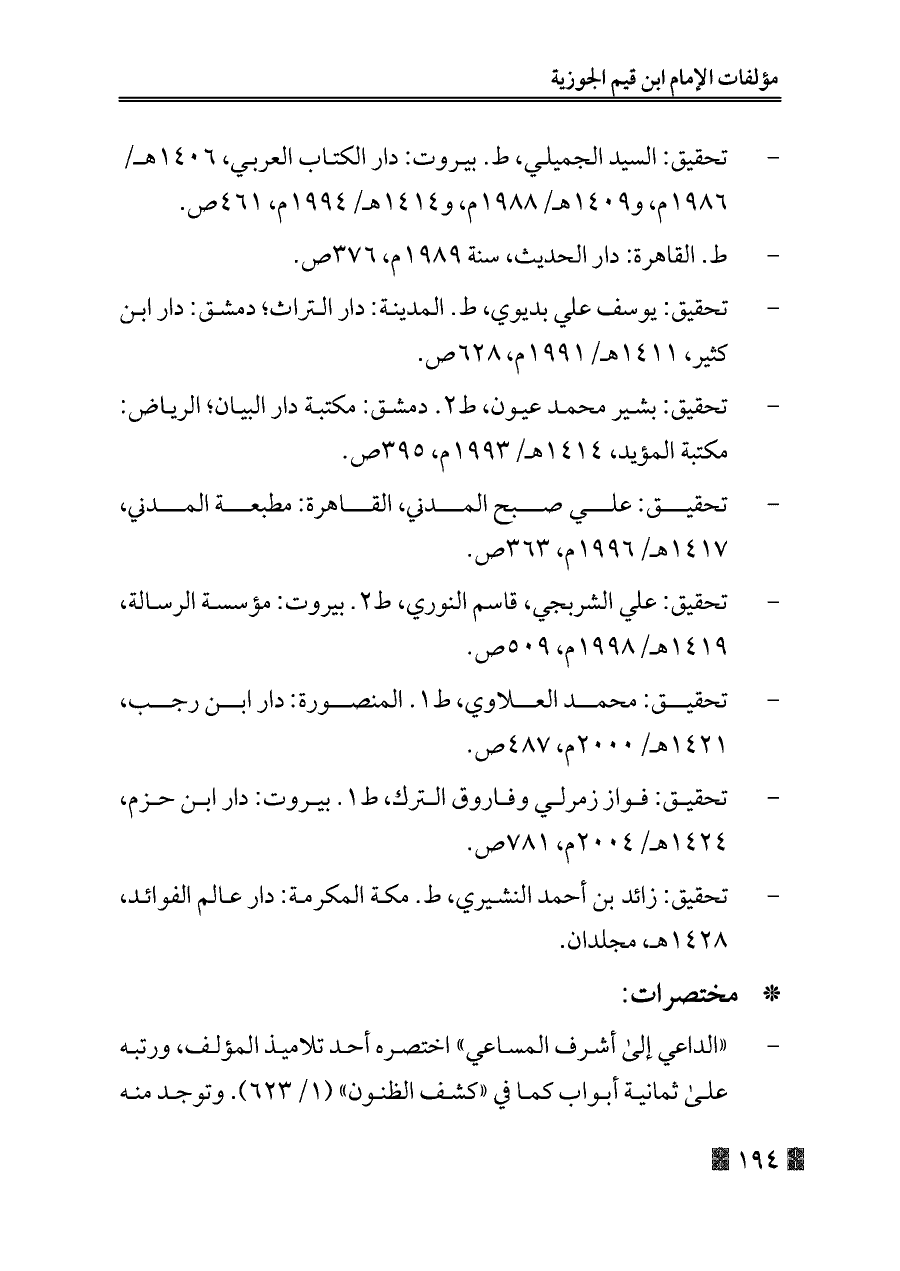 مؤلفات الإمام ابن قيم الجوزية
- تحقيق: السيد الجميلي، ط. بيروت: دار الكتاب العربي، ١٤٠٦هـ/
١٩٨٦م، و١٤٠٩هـ/ ١٩٨٨م، و١٤١٤هـ/ ١٩٩٤م، ٤٦١ص.
- ط. القاهرة: دار الحديث، سنة ١٩٨٩م، ٣٧٦ص.
- تحقيق: يوسف علي بديوي، ط. المدينة: دار التراث؛ دمشق: دار ابن
كثير، ١٤١١هـ/ ١٩٩١م، ٦٢٨ص.
- تحقيق: بشير محمد عيون، ط٢. دمشق: مكتبة دار البيان؛ الرياض:
مكتبة المؤيد، ١٤١٤هـ/ ١٩٩٣م، ٣٩٥ص.
- تحقيق: علي صبح المدني، القاهرة: مطبعة المدني،
١٤١٧هـ/ ١٩٩٦م، ٣٦٣ص.
- تحقيق: علي الشربجي، قاسم النوري، ط٢. بيروت: مؤسسة الرسالة،
١٤١٩هـ/ ١٩٩٨م، ٥٠٩ص.
- تحقيق: محمد العلاوي، ط١. المنصورة: دار ابن رجب،
١٤٢١هـ/ ٢٠٠٠م، ٤٨٧ص.
- تحقيق: فواز زمرلي وفاروق الترك، ط١. بيروت: دار ابن حزم،
١٤٢٤هـ/ ٢٠٠٤م، ٧٨١ص.
- تحقيق: زائد بن أحمد النشيري، ط. مكة المكرمة: دار عالم الفوائد،
١٤٢٨هـ، مجلدان.
* مختصرات:
- «الداعي إلىٰ أشرف المساعي» اختصره أحد تلاميذ المؤلف، ورتبه
علىٰ ثمانية أبواب كما في «كشف الظنون» (١/ ٦٢٣). وتوجد منه
١٩٤